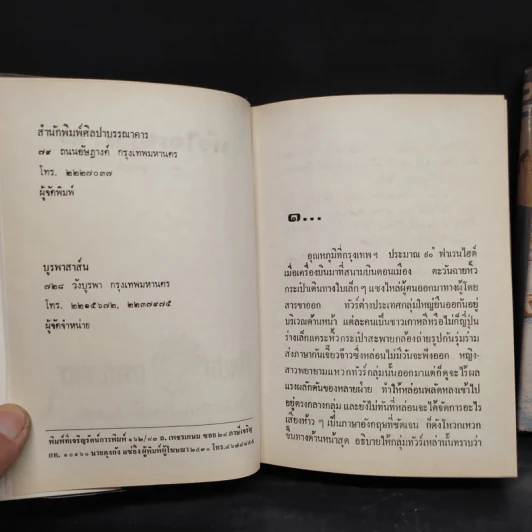 สำนักพิมพ์ศิลปาบรรณาคาร
๗๙ ถนนอัษฎางค์ กรุงเทพมหานคร
โทร. ๒๒๒๗๐๓๗
ผู้จัดพิมพ์
บูรพาสาส์น
๗๒๘ วังบูรพา กรุงเทพมหานคร
โทร. ๒๒๑๕๖๗๒, ๒๒๓๗๙๗๕
ผู้จัดจำหน่าย
พิมพ์ที่เจริญรัตน์การพิมพ์ ๑๖๒/๔๓ ถ. เพชรเกษม ซอย ๒๘ ภาษีเจริญ
กท. ๑๐๑๖๐ ผู้พิมพ์ผู้โฆษณา ๒๕๓๐ โทร.
๑...
อุณหภูมิที่กรุงเทพฯ ประมาณ ๙๐° ฟาเรนไฮต์
เมื่อเครื่องบินมาที่สนามบินดอนเมือง ตะวันฉายหิ้ว
กระเป๋าเดินทางใบเล็ก ๆ แซงใหล่ผู้คนออกมาทางตู้โดย
สารขาออก ทัวร์ต่างประเทศกลุ่มใหญ่ยืนออกันอยู่
บริเวณด้านหน้า แต่ละคนเป็นชาวเกาหลีหรือไม่ก็ญี่ปุ่น
ร่างเล็กแคระหิ้วกระเป๋าสะพายกล้องถ่ายรูปกันรุ่มร่าม
ส่งภาษากันเจี๊ยวจ๊าวซึ่งหล่อนไม่มีวันจะฟังออก หญิง-
สาวพยายามแหวกทัวร์กลุ่มนั้นออกมาแต่ก็ดูจะไร้ผล
แรงผลักดันของหลายฝ่าย ทำให้หล่อนพลัดหลงเข้าไป
อยู่ตรงกลางกลุ่ม และยังไม่ทันที่หล่อนจะได้จัดการอะไร
เสียงห้าว ๆ เป็นภาษาอังกฤษที่ชัดเจน ก็ดังโหวกเหวก
ขึ้นทางด้านหน้าสุด อธิบายให้กลุ่มทัวร์เหล่านั้นทราบว่า